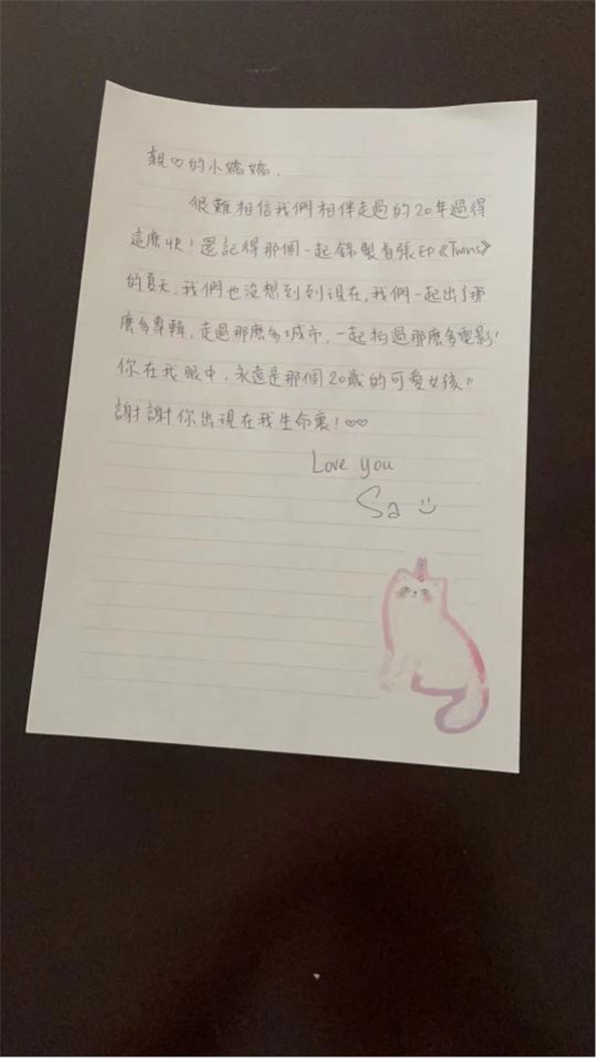 親♡的小嬌嬌,
很難相信我們相伴走過的20年過得
這麼快!還記得那個一起錄製首張EP《Twins》
的夏天,我們也沒想到到現在,我們一起出了那
麼多專輯,走過那麼多城市,一起拍過那麼多電影!
你在我眼中,永遠是那個20歲的可愛女孩。
謝謝你出現在我生命裏!♡♡
Love you
Sa